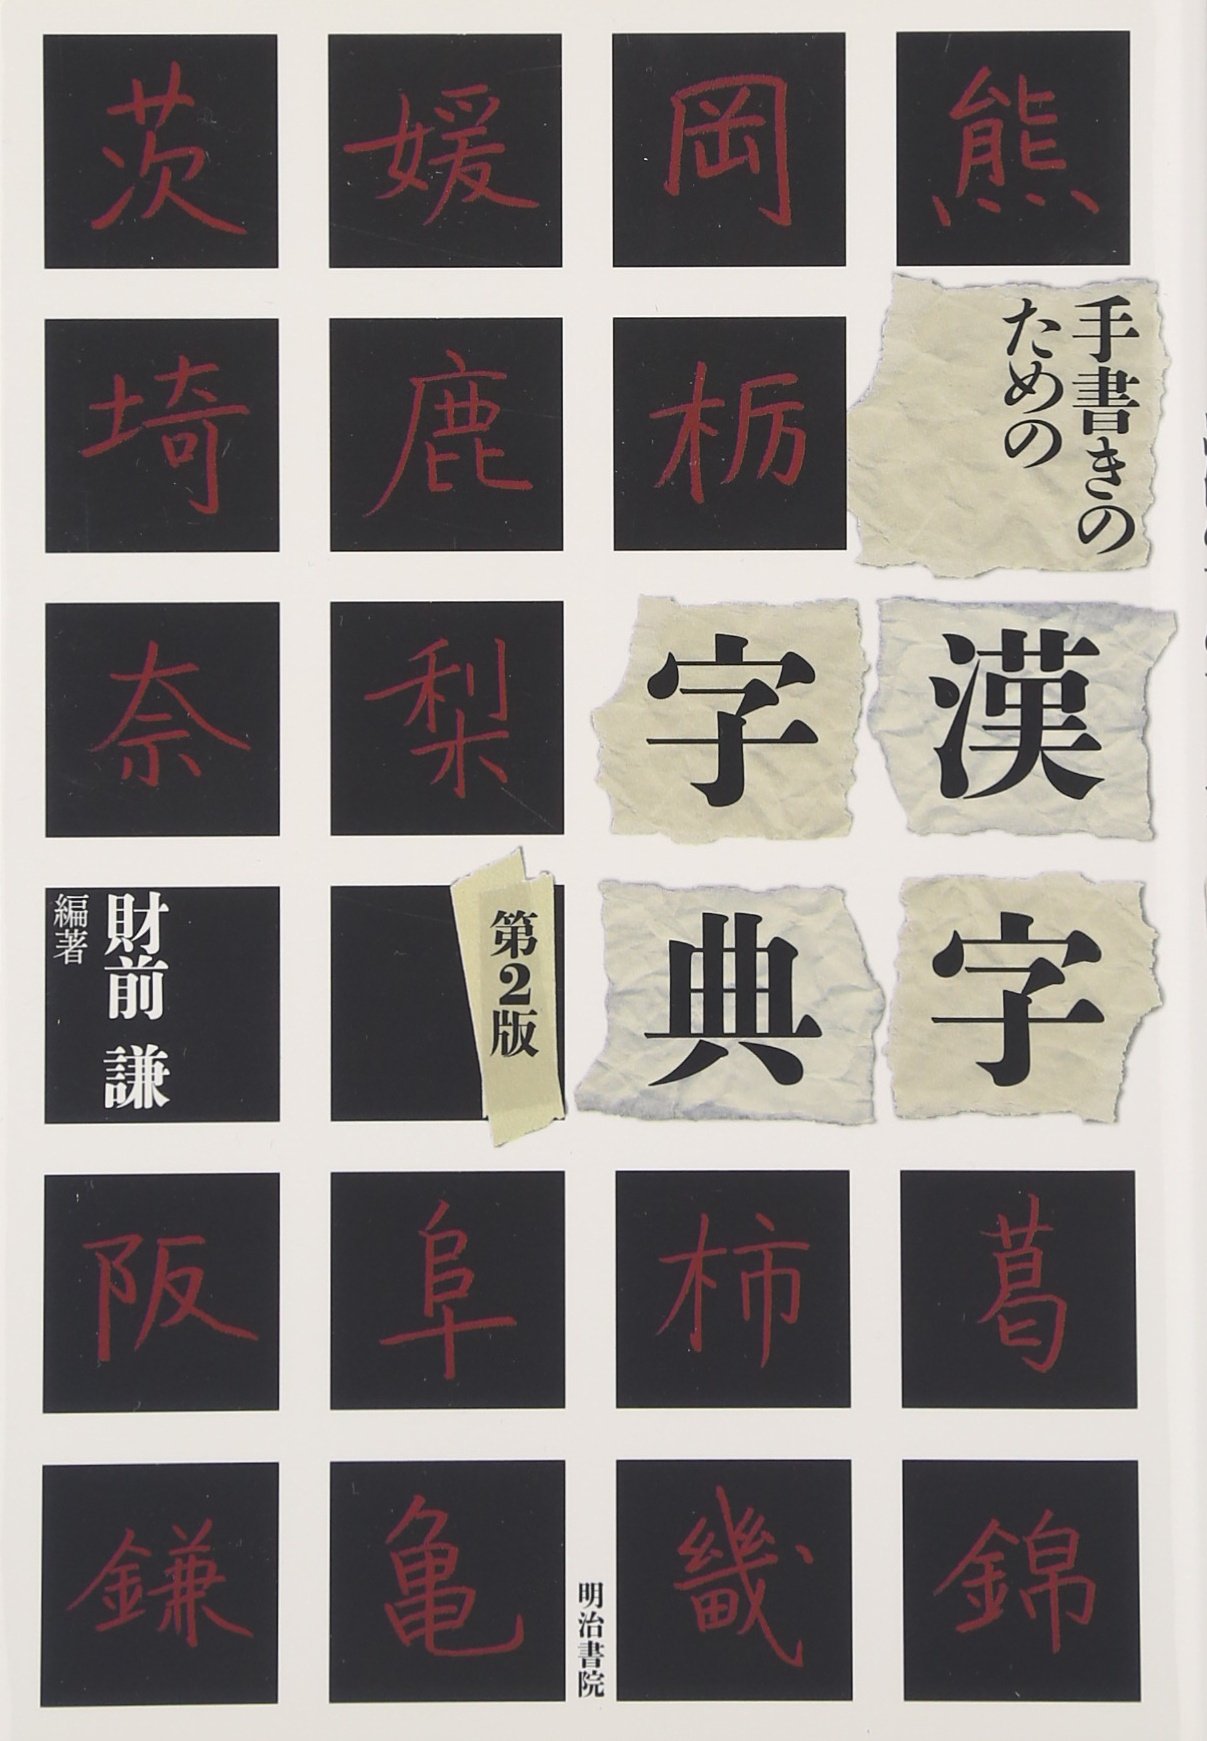 熊
岡
媛
茨
栃
鹿
埼
手書きの
ための
漢字
字典
第2版
梨
奈
財前 謙
編著
葛
柿
阜
阪
錦
畿
亀
鎌
明治書院